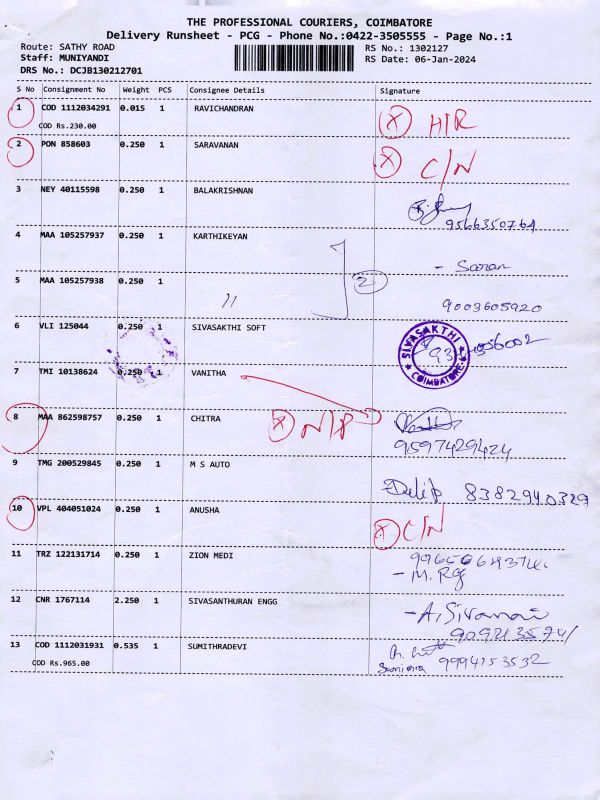 THE PROFESSIONAL COURIERS, COIMBATORE
Delivery Runsheet - PCG - Phone No.:0422-3505555 - Page No.:1
Route: SATHY ROAD RS No.: 1302127
Staff: MUNIYANDI RS Date: 06-Jan-2024
DRS No.: DCJB130212701
S No Consignment No Weight PCS Consignee Details Signature
1 COD 1112034291 0.015 1 RAVICHANDRAN X H/R
COD Rs.230.00
2 PON 858603 0.250 1 SARAVANAN X C/N
3 NEY 40115598 0.250 1 BALAKRISHNAN
9566350764
4 MAA 105257937 0.250 1 KARTHIKEYAN
- Saran
5 MAA 105257938 0.250 1 〃 2
9003605920
6 VLI 125044 0.250 1 SIVASAKTHI SOFT
SIVASAKTHI COIMBATORE
7 TMI 10138624 0.250 1 VANITHA
8 MAA 862598757 0.250 1 CHITRA X N/P
9597429424
9 TMG 200529845 0.250 1 M S AUTO
Dilip 8382940329
10 VPL 404051024 0.250 1 ANUSHA X C/N
11 TRZ 122131714 0.250 1 ZION MEDI
12 CNR 1767114 2.250 1 SIVASANTHURAN ENGG
13 COD 1112031931 0.535 1 SUMITHRADEVI
COD Rs.965.00 9994153532